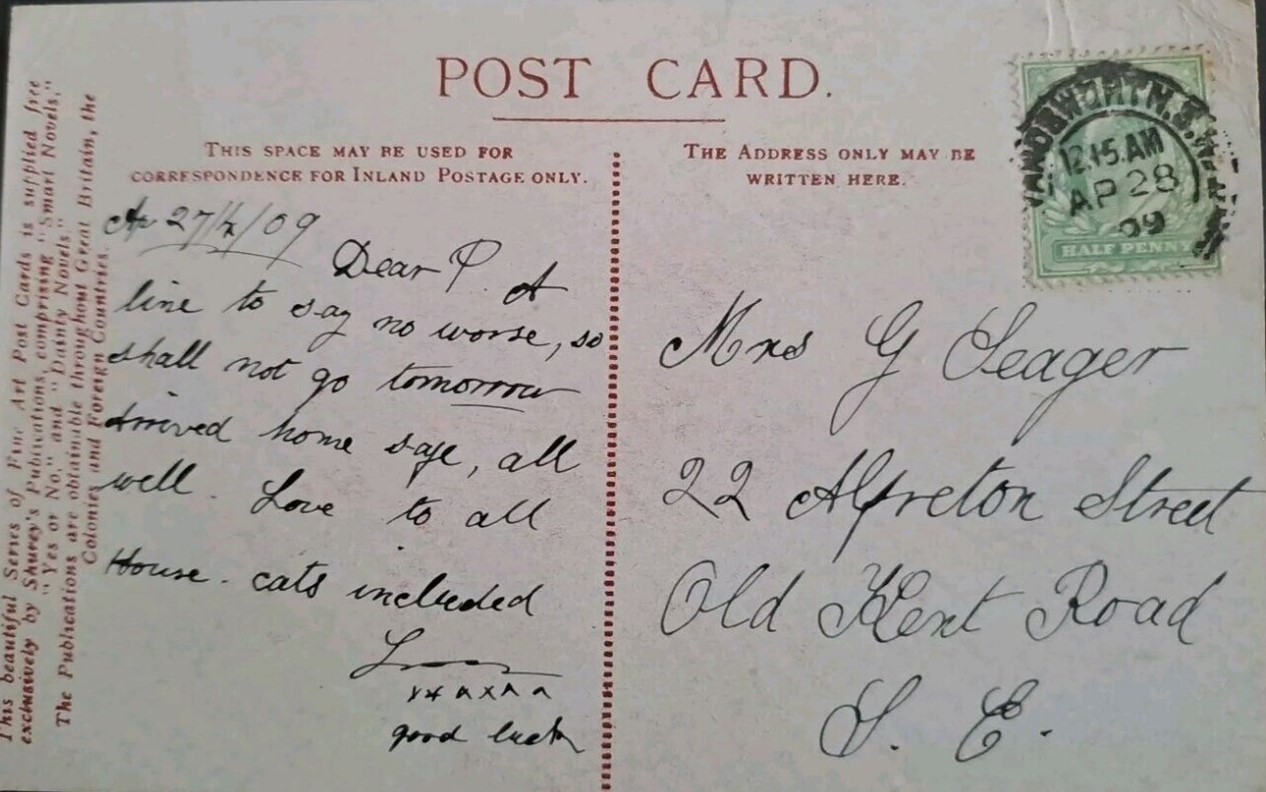 POST CARD.
THIS SPACE MAY BE USED FOR
CORRESPONDENCE FOR INLAND POSTAGE ONLY.
THE ADDRESS ONLY MAY BE
WRITTEN HERE.
WANDSWORTH.S.W.
12.15.AM
AP 28
09
HALF PENNY
27/4/09
Dear P. A
line to say no worse, so
shall not go tomorrow
Arrived home safe, all
well. Love to all
House. cats included
good luck
Mrs G Seager
22 Alfreton Street
Old Kent Road
S. E.
This beautiful Series of Fine Art Post Cards is supplied free
exclusively by Shurey's Publications, comprising "Smart Novels,"
"Yes or No," and "Dainty Novels."
The Publications are obtainable throughout Great Britain, the
Colonies and Foreign Countries.